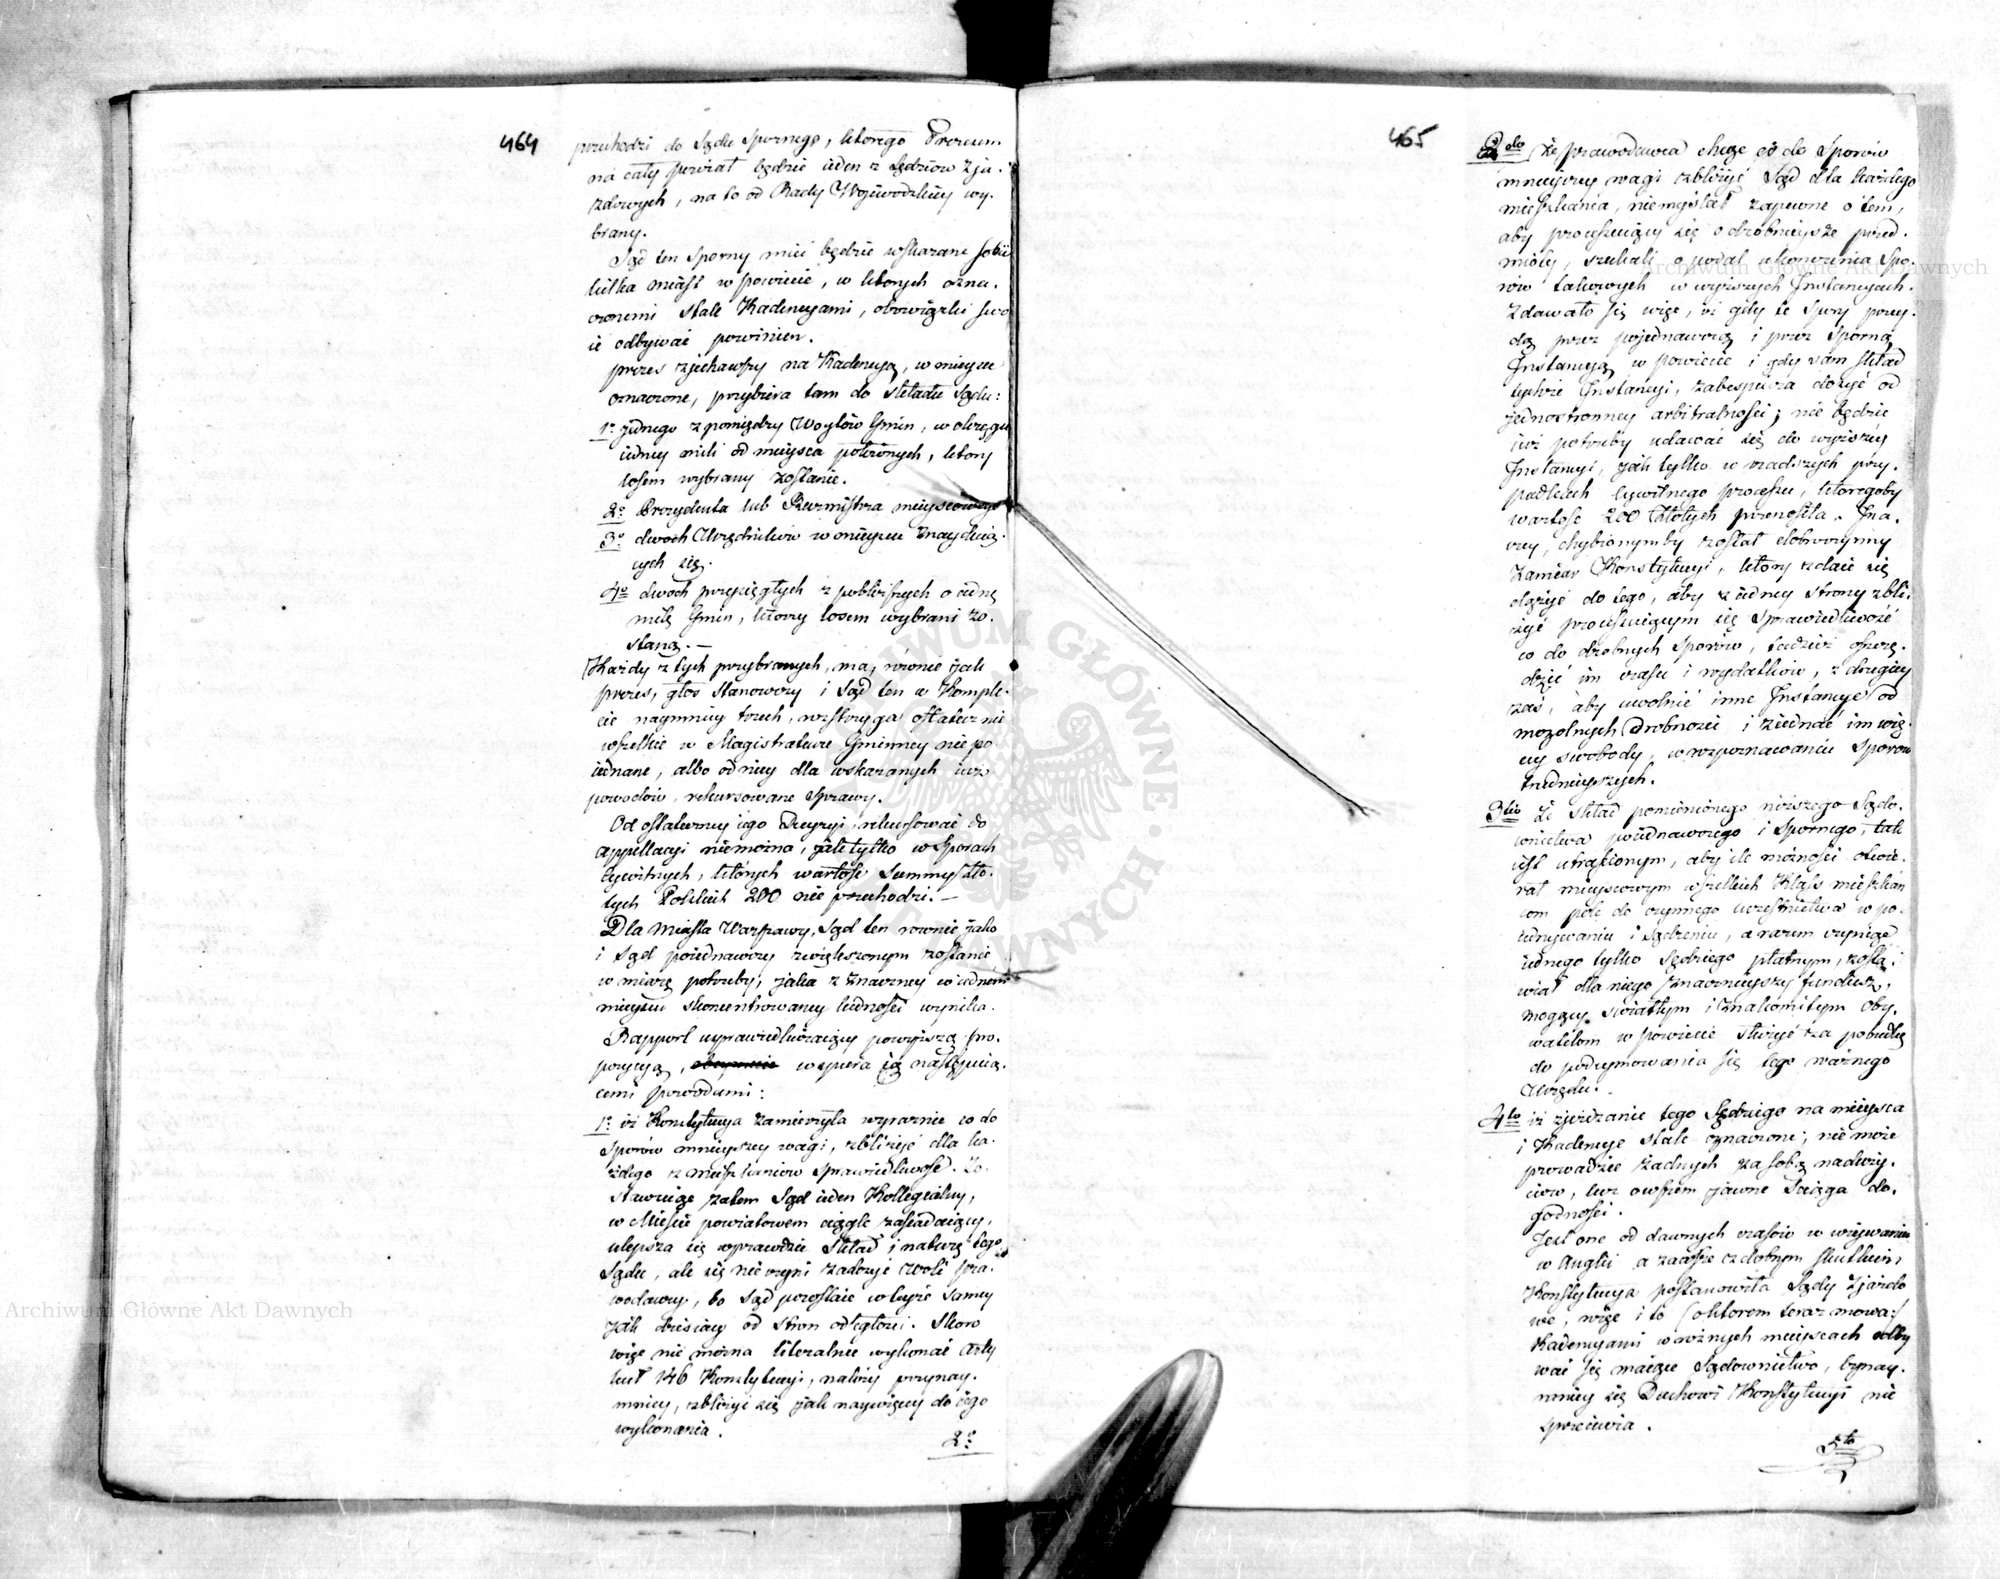 464
przechodzi do Sądu Spornego, którego Prezesem
na cały powiat będzie ieden z Sędziów Zja-
zdowych, na to od Rady Woiewodzkiey wy-
brany.
Sąd ten Sporny mieć będzie wskazane sobie
kilka miast w powiecie, w których ozna-
czonemi stale Kadencyami, obowiązki swo
ie odbywać powinien.
prezes zjechawszy na Kadencyą, w mieysce
oznaczone, przybiera tam do składu Sądu:
1o jednego z pomiędzy Woytów Gmin, w okręgu
iedney mili od mieysca położonych, który
losem wybrany zostanie.
2o Prezydenta lub Burmistrza mieyscowego
3o dwoch Urzędników w mieyscu znayduią-
cych się.
4o dwoch przysięgłych z pobliższych o iednę
milę Gmin, którzy losem wybrani zo-
staną. —
Każdy z tych przybranych, ma, równie jak
prezes, głos stanowczy i Sąd ten w komple-
cie naymniey trzech, rozstrzyga ostatecznie
wszelkie w Magistraturze Gminney nie po
iednane, albo od niey dla wskazanych iuż
powodów, rekursowane Sprawy.
Od ostateczney iego Decyzyi, rekursować do
appellacyi niemożna, jak tylko w Sporach
cywilnych, których wartość Summy Zło-
tych Polskich 200 nie przechodzi. —
Dla miasta Warszawy, Sąd ten rownie jako
i Sąd poiednawczy zwiększonym zostanie,
w miarę potrzeby, jaka z znaczney w iednem
mieyscu skoncentrowaney ludności wynika.
Rapport usprawiedliwiaiący powyższą pro-
pozycyą, wspiera ią następuią-
cemi powodami:
1o iż Konstytucya zamierzyła wyraznie co do
Sporów mnieyszey wagi, zbliżyć dla ka-
żdego z mieszkanców Sprawiedliwość. Zo-
stawuiąc zatem Sąd ieden Kollegialny,
w Mieście powiatowem ciągle zasiadaiący,
ulepsza się wprawdzie Skład i naturę tego
Sądu, ale się nie czyni zadosyć woli pra-
wodawcy, bo Sąd pozostaie w teyże samey
jak dzisiay od stron odległości. Skoro
więc nie można literalnie wykonać Arty
kuł 146 Konstytucyi, należy przynay-
mniey, zbliżyć się jak naywięcey do iego
wykonania.
2o
465
2do Że prawodawca chcąc co do Sporów
mnieyszey wagi zbliżyć Sąd dla każdego
mieszkańca, niemyślał zapewne o tem,
aby processuiący się o drobnieysze przed-
mioty, szukali opodal ukończenia Spo-
rów takowych w wyższych Instancyach.
Zdawało się więc, iż gdy te Spory przey-
dą przez pojednawczą i przez Sporną
Instancyą w powiecie i gdy sam skład
tychże Instancyi, zabespiecza dosyć od
jednostronney arbitralności; nie będzie
iuż potrzeby udawać się do wyższey
Instancyi, jak tylko w rzadszych przy-
padkach cywilnego processu, któregoby
wartość 200 Złotych przenosiła. Ina-
czey, chybionymby został dobroczynny
zamiar Konstytucyi, który zdaie się
dążyć do tego, aby z iedney strony zbli-
żyć processuiącym się Sprawiedliwość
co do drobnych Sporów, tudzież oszczę-
dzić im czasu i wydatków, z drugiey
zaś, aby uwolnić inne Instancye od
mozolnych drobności i ziednać im wię-
cey swobody, w rozpoznawaniu Sporów
trudnieyszych.
3tio Że skład pomienionego niższego Sądo-
wnictwa poiednawczego i Spornego, tak
iest utrafionym, aby ile możności otwie-
rał mieyscowym wszelkich Klass mieszkań
com pole do czynnego uczestnictwa w po-
iednywaniu i Sądzeniu, a razem czyniąc
iednego tylko Sędziego płatnym, zosta-
wiał dla niego znacznieyszy fundusz,
mogący światłym i znakomitym Oby-
watelom w powiecie służyć za pobudkę
do podeymowania się tego ważnego
Urzędu.
4to iż zjeżdzanie tego Sędziego na mieysca
i Kadencye stale oznaczone; nie może
prowadzić żadnych za sobą naduży-
ciow, lecz owszem jawne ściąga do-
godności.
Jest one od dawnych czasów w używaniu
w Anglii a zawsze z dobrym skutkiem,
Konstytucya postanowiła Sądy Zjazdo
we, więc i to (o którem teraz mowa:)
Kadencyami w różnych mieyscach odby
wać się maiące Sądownictwo, bynay-
mniey się Duchowi Konstytucyi nie
sprzeciwia.
5to
Archiwum Główne Akt Dawnych
Archiwum Główne Akt Dawnych
ARCHIWUM GŁÓWNE AKT DAWNYCH